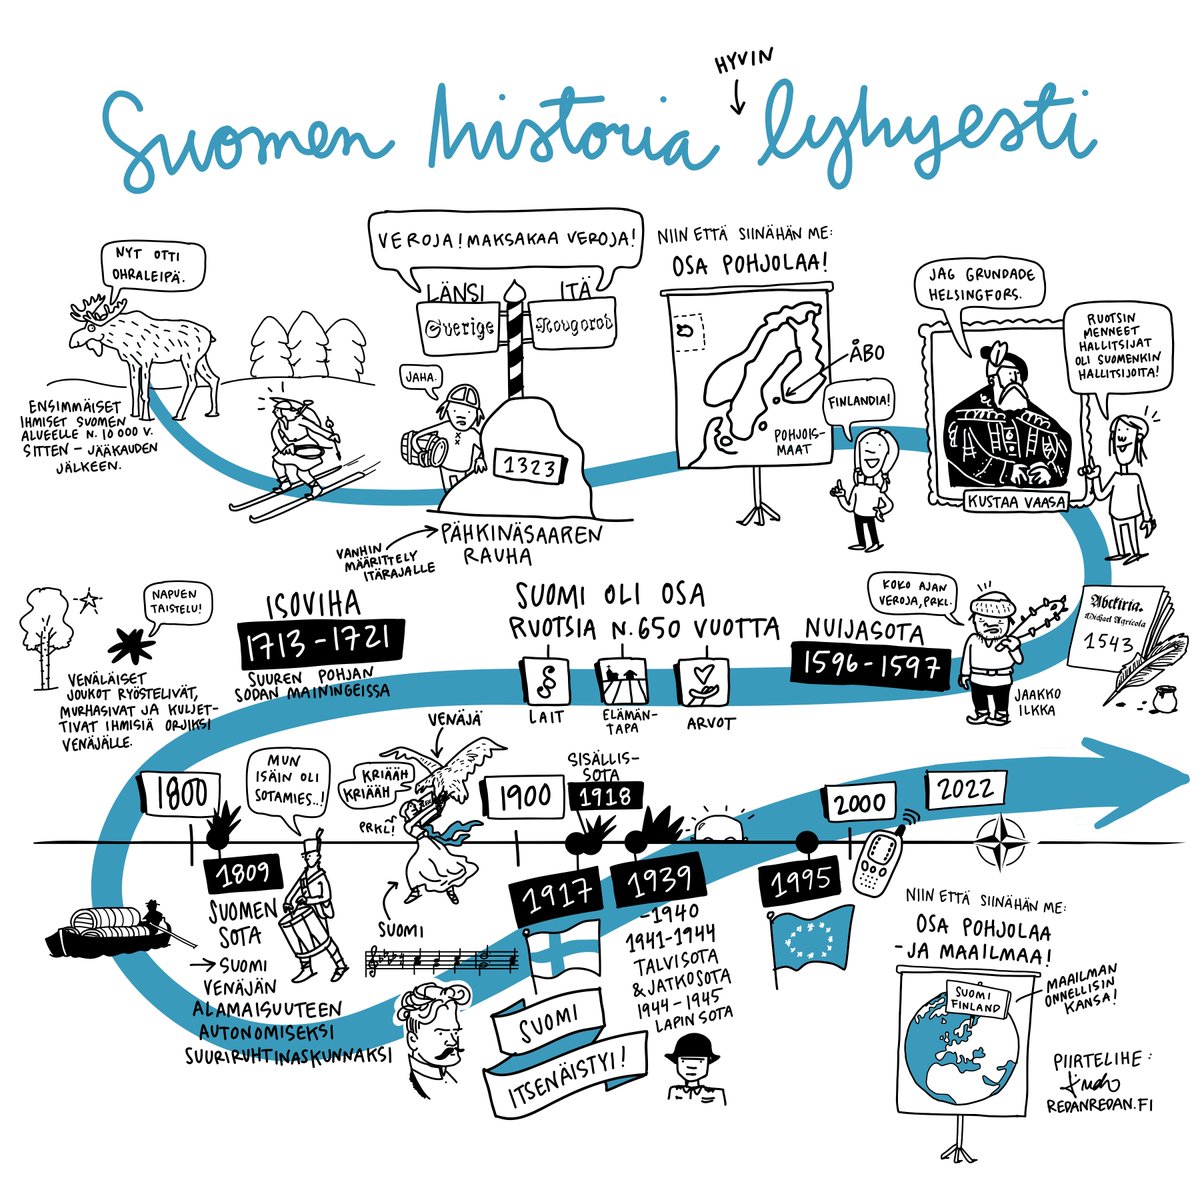 HYVIN
Suomen historia lyhyesti
NYT OTTI
OHRALEIPÄ.
ENSIMMÄISET
IHMISET SUOMEN
ALUEELLE N. 10 000 V.
SITTEN – JÄÄKAUDEN
JÄLKEEN.
VEROJA! MAKSAKAA VEROJA!
LÄNSI
ITÄ
Sverige
Nougorod
JAHA.
1323
PÄHKINÄSAAREN
RAUHA
VANHIN
MÄÄRITTELY
ITÄRAJALLE
NIIN ETTÄ SIINÄHÄN ME:
OSA POHJOLAA!
ÅBO
POHJOIS-
MAAT
FINLANDIA!
JAG GRUNDADE
HELSINGFORS.
KUSTAA VAASA
RUOTSIN
MENNEET
HALLITSIJAT
OLI SUOMENKIN
HALLITSIJOITA!
Abckiria.
Michael Agricola
1543
KOKO AJAN
VEROJA, PRKL.
JAAKKO
ILKKA
NUIJASOTA
1596-1597
SUOMI OLI OSA
RUOTSIA N. 650 VUOTTA
LAIT
ELÄMÄN-
TAPA
ARVOT
ISOVIHA
1713-1721
SUUREN POHJAN
SODAN MAININGEISSA
NAPUEN
TAISTELU!
VENÄLÄISET
JOUKOT RYÖSTELIVÄT,
MURHASIVAT JA KULJET-
TIVAT IHMISIÄ ORJIKSI
VENÄJÄLLE.
1800
1809
SUOMEN
SOTA
→ SUOMI
VENÄJÄN
ALAMAISUUTEEN
AUTONOMISEKSI
SUURIRUHTINASKUNNAKSI
MUN
ISÄIN OLI
SOTAMIES..!
VENÄJÄ
KRIÄÄH
KRIÄÄH
PRKL!
SUOMI
1900
SISÄLLIS-
SOTA
1918
1917
SUOMI
ITSENÄISTYI!
1939
-1940
1941-1944
TALVISOTA
& JATKOSOTA
1944-1945
LAPIN SOTA
1995
2000
2022
NIIN ETTÄ SIINÄHÄN ME:
OSA POHJOLAA
- JA MAAILMAA!
SUOMI
FINLAND
MAAILMAN
ONNELLISIN
KANSA!
PIIRTELIHE:
REDANREDAN.FI